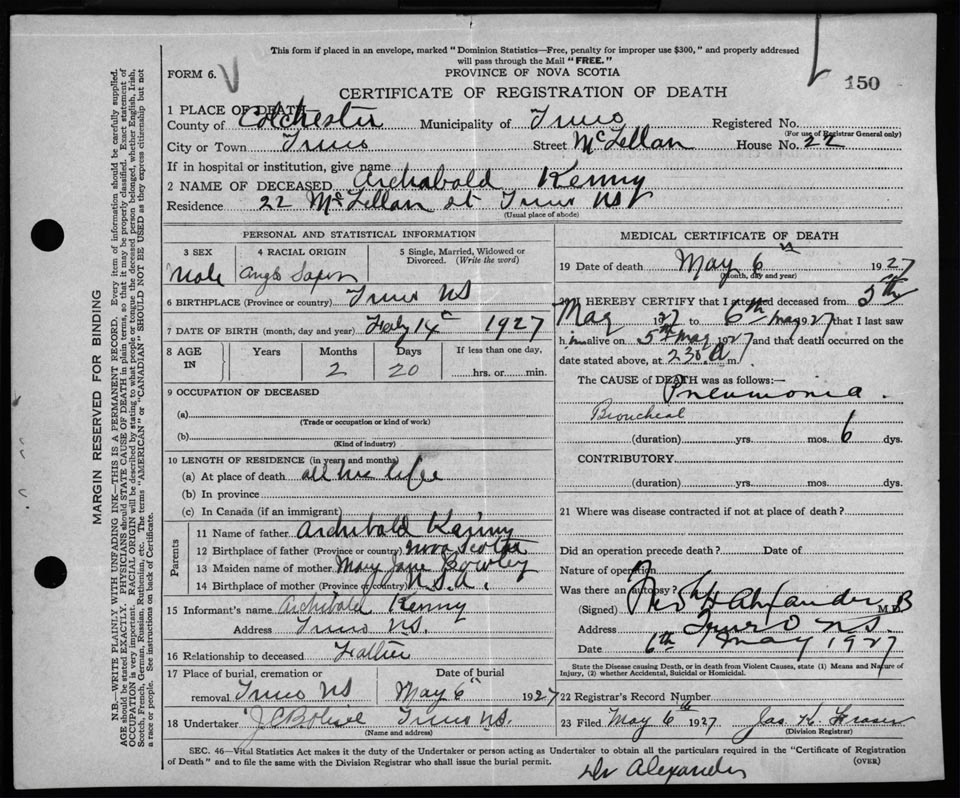 This form if placed in an envelope, marked "Dominion Statistics—Free, penalty for improper use $300," and properly addressed
will pass through the Mail "FREE."
FORM 6.
PROVINCE OF NOVA SCOTIA
150
CERTIFICATE OF REGISTRATION OF DEATH
1 PLACE OF DEATH
County of Colchester Municipality of Truro Registered No.
(For use of Registrar General only)
City or Town Truro Street McLellan House No. 22
If in hospital or institution, give name
2 NAME OF DECEASED Archabald Kenny
Residence 22 McLellan st Truro NS
(Usual place of abode)
PERSONAL AND STATISTICAL INFORMATION
3 SEX Male
4 RACIAL ORIGIN Anglo Saxon
5 Single, Married, Widowed or Divorced. (Write the word)
6 BIRTHPLACE (Province or country) Truro NS
7 DATE OF BIRTH (month, day and year) Feby 14 1927
8 AGE IN Years Months 2 Days 20 If less than one day, hrs. or min.
9 OCCUPATION OF DECEASED
(a)
(Trade or occupation or kind of work)
(b)
(Kind of industry)
10 LENGTH OF RESIDENCE (in years and months)
(a) At place of death all his life
(b) In province
(c) In Canada (if an immigrant)
Parents
11 Name of father Archibald Kenny
12 Birthplace of father (Province or country) Nova Scotia
13 Maiden name of mother Mary Jane
14 Birthplace of mother (Province or country)
15 Informant's name Archibald Kenny
Address Truro NS.
16 Relationship to deceased Father
17 Place of burial, cremation or removal Truro NS
Date of burial May 6 1927
18 Undertaker Truro NS.
(Name and address)
MEDICAL CERTIFICATE OF DEATH
19 Date of death May 6th 1927
(month, day and year)
I HEREBY CERTIFY that I attended deceased from 5th
May 1927 to 6th May 1927 that I last saw
h im alive on 5th May 1927 and that death occurred on the
date stated above, at 2 30 A m.
The CAUSE of DEATH was as follows:—
Pneumonia.
Broncheal
(duration) yrs. mos. 6 dys.
CONTRIBUTORY
(duration) yrs. mos. dys.
21 Where was disease contracted if not at place of death?
Did an operation precede death? Date of
Nature of operation
Was there an autopsy?
(Signed) Alexander M B
Address Truro N.S.
Date 6th May 1927
State the Disease causing Death, or in death from Violent Causes, state (1) Means and Nature of
Injury, (2) whether Accidental, Suicidal or Homicidal.
22 Registrar's Record Number
23 Filed May 6th 1927. Jas. K. Fraser
(Division Registrar)
SEC. 46—Vital Statistics Act makes it the duty of the Undertaker or person acting as Undertaker to obtain all the particulars required in the "Certificate of Registration
of Death" and to file the same with the Division Registrar who shall issue the burial permit.
(OVER)
Dr Alexander
MARGIN RESERVED FOR BINDING
N.B.—WRITE PLAINLY WITH UNFADING INK—THIS IS A PERMANENT RECORD. Every item of information should be carefully supplied.
AGE should be stated EXACTLY. PHYSICIANS should STATE CAUSE OF DEATH in plain terms, so that it may be properly classified. Exact statement of
OCCUPATION is very important. RACIAL ORIGIN will be described by stating to what people or tongue the deceased person belonged, whether English, Irish,
Scotch, French, German, Russian, Ruthenian, etc. The terms "AMERICAN" or "CANADIAN" SHOULD NOT BE USED as they express citizenship but not
a race or people. See instructions on back of Certificate.